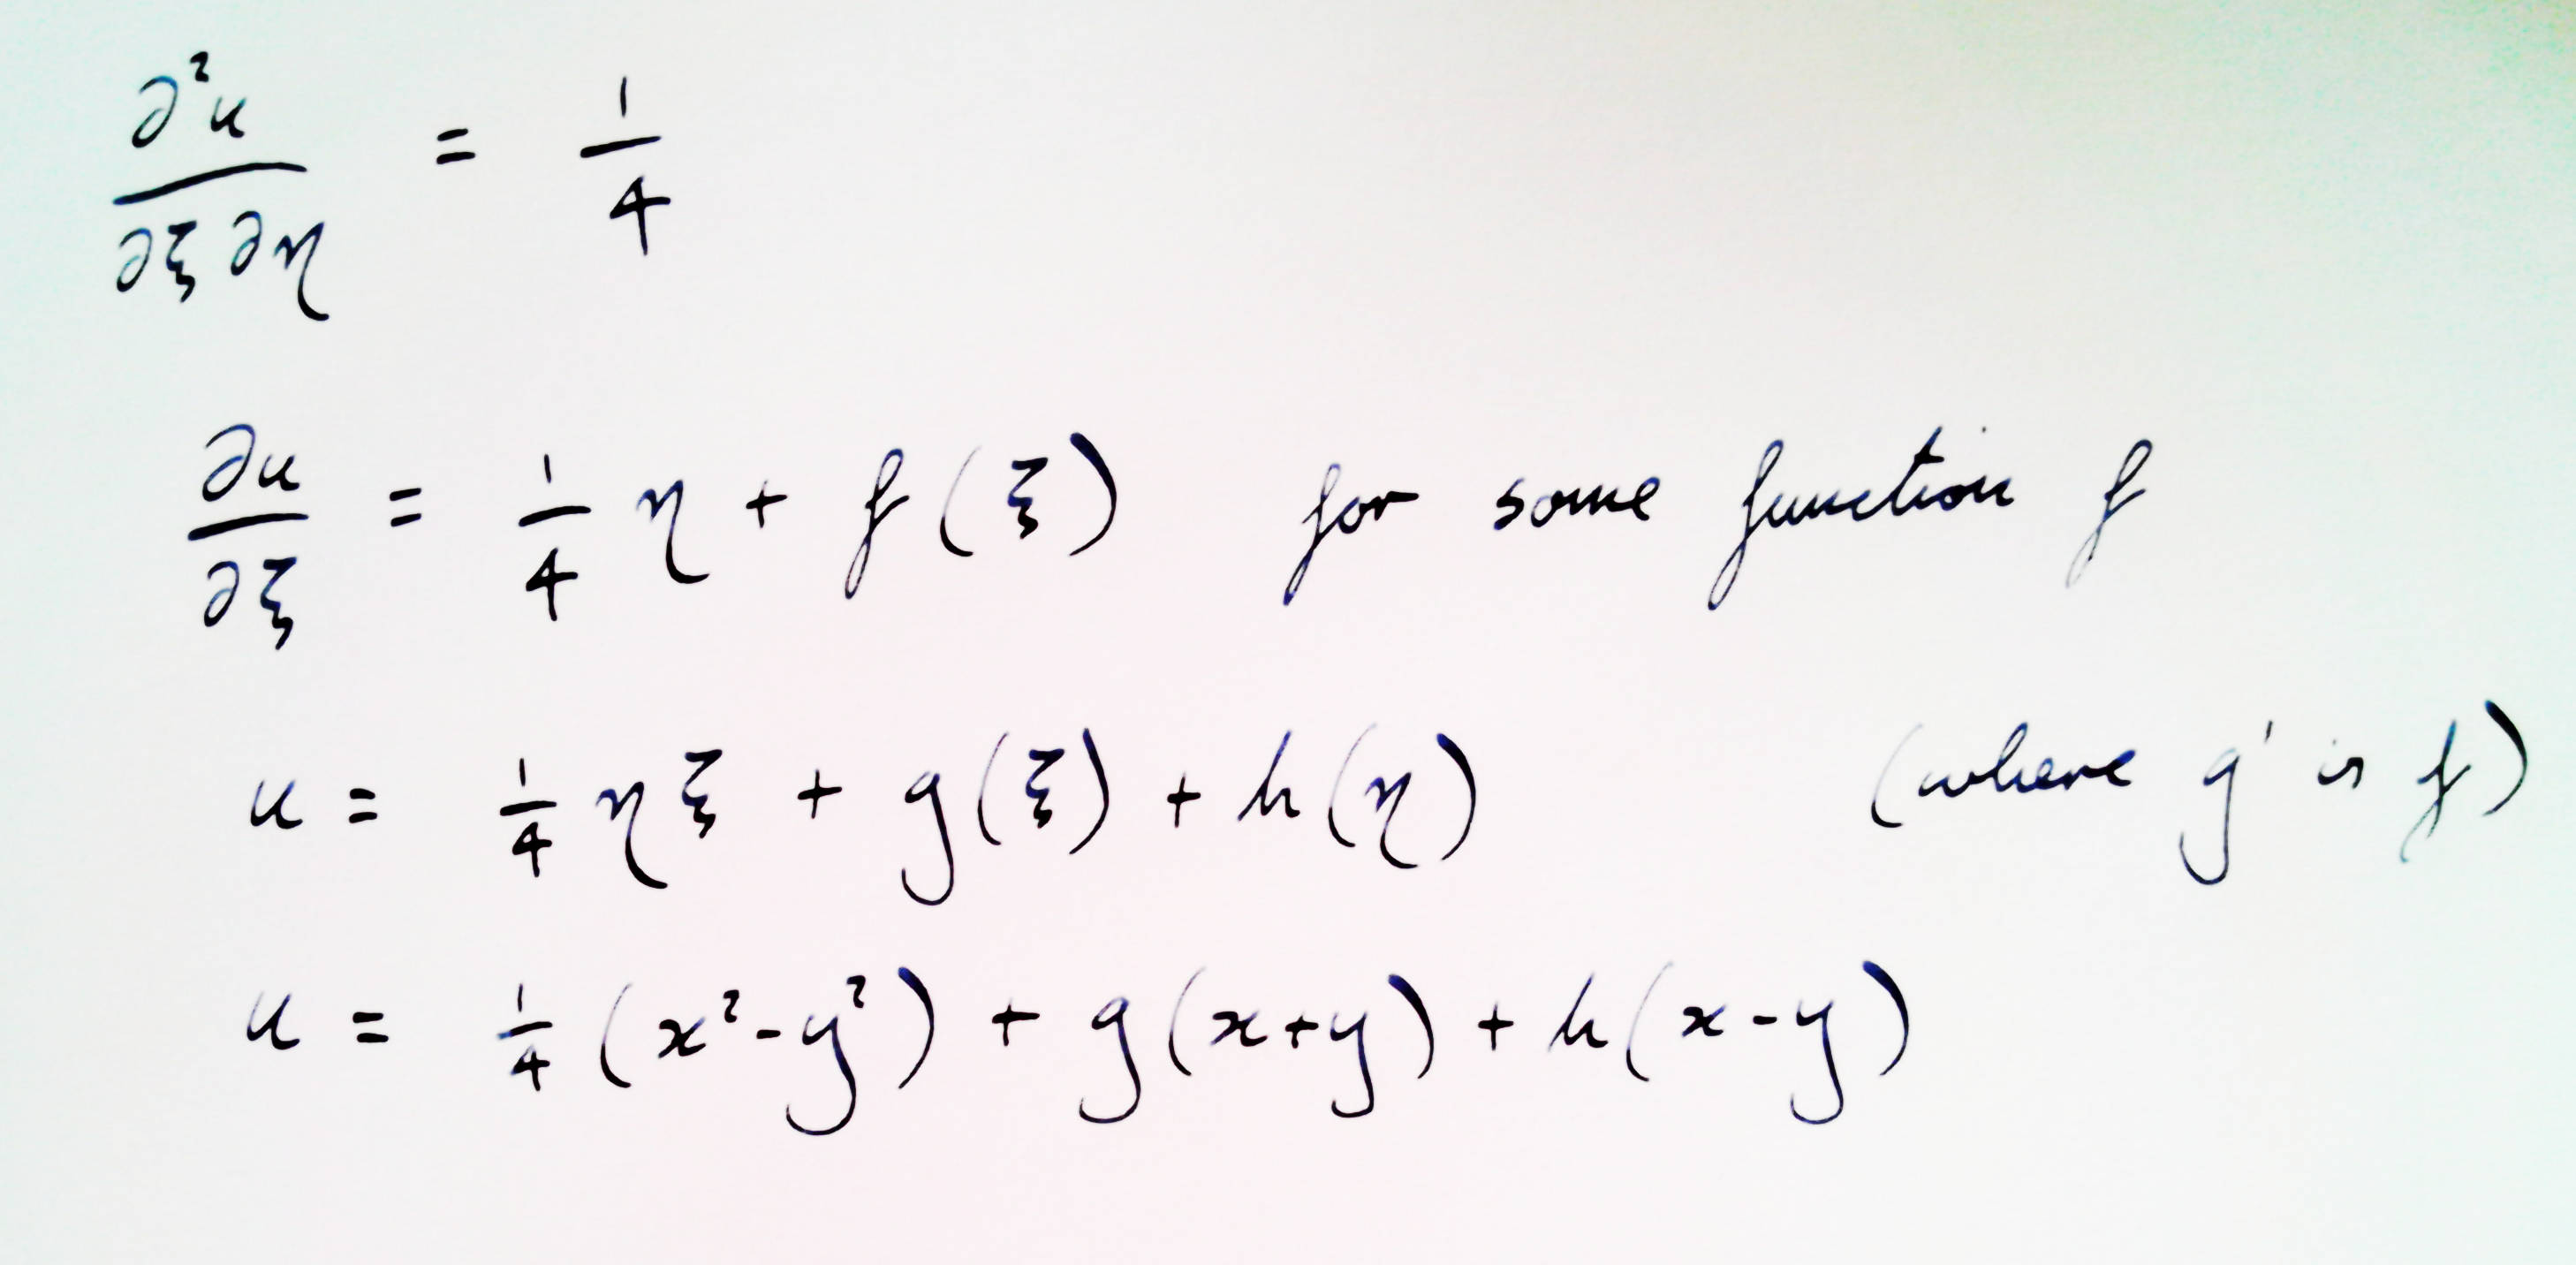 ∂²u/∂ξ∂η = 1/4
∂u/∂ξ = 1/4 η + f(ξ) for some function f
u = 1/4 ηξ + g(ξ) + h(η) (where g' is f)
u = 1/4 (x²-y²) + g(x+y) + h(x-y)